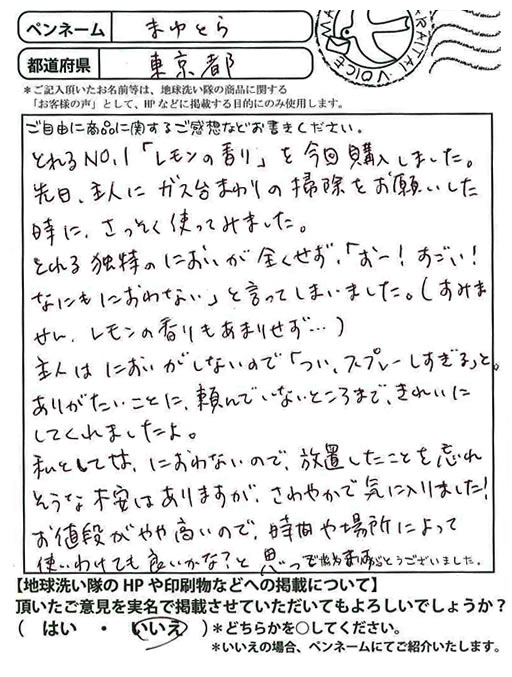 ペンネーム まゆとら
都道府県 東京都
*ご記入頂いたお名前等は、地球洗い隊の商品に関する
「お客様の声」として、HPなどに掲載する目的にのみ使用します。
ご自由に商品に関するご感想などお書きください。
とれるNO.1「レモンの香り」を今回購入しました。
先日、主人にガス台まわりの掃除をお願いした
時に、さっそく使ってみました。
とれる独特のにおいが全くせず、「おー!すごい!
なにもにおわない」と言ってしまいました。(すみま
せん、レモンの香りもあまりせず…)
主人はにおいがしないので「つい、スプレーしすぎる」と。
ありがたいことに、頼んでいないところまで、きれいに
してくれましたよ。
私としては、におわないので、放置したことを忘れ
そうな不安はありますが、さわやかで気に入りました!
お値段がやや高いので、時間や場所によって
使いわけても良いかな?と思って
ありがとうございました。
【地球洗い隊のHPや印刷物などへの掲載について】
頂いたご意見を実名で掲載させていただいてもよろしいでしょうか?
( はい ・ いいえ )*どちらかを○してください。
*いいえの場合、ペンネームにてご紹介いたします。